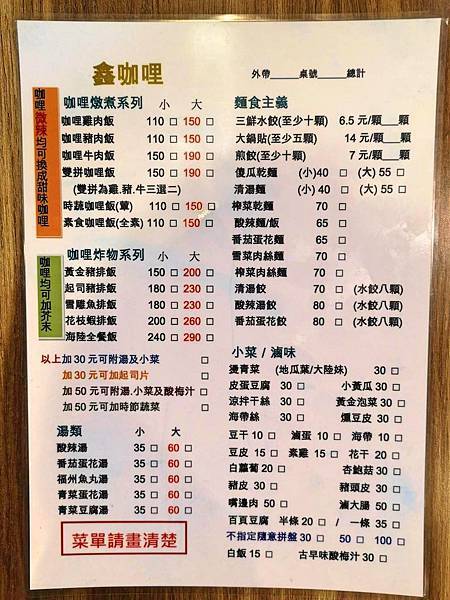 鑫咖哩
外帶______桌號______總計
咖哩微辣均可換成甜味咖哩
咖哩燉煮系列 小 大
咖哩雞肉飯 110 □ 150 □
咖哩豬肉飯 110 □ 150 □
咖哩牛肉飯 150 □ 190 □
雙拼咖哩飯 150 □ 190 □
(雙拼為雞.豬.牛三選二)
時蔬咖哩飯(葷) 110 □ 150 □
素食咖哩飯(全素) 110 □ 150 □
咖哩均可加芥末
咖哩炸物系列 小 大
黃金豬排飯 150 □ 200 □
起司豬排飯 180 □ 230 □
雪雕魚排飯 180 □ 230 □
花枝蝦排飯 200 □ 260 □
海陸全餐飯 240 □ 290 □
以上加 30 元可附湯及小菜 □
加 30 元可加起司片 □
加 50 元可附湯.小菜及酸梅汁 □
加 50 元可加時節蔬菜 □
湯類 小 大
酸辣湯 35 □ 60 □
番茄蛋花湯 35 □ 60 □
福州魚丸湯 35 □ 60 □
青菜蛋花湯 35 □ 60 □
青菜豆腐湯 35 □ 60 □
菜單請畫清楚
麵食主義
三鮮水餃(至少十顆) 6.5 元/顆___顆
大鍋貼(至少五顆) 14 元/顆___顆
煎餃(至少十顆) 7 元/顆___顆
傻瓜乾麵 (小)40 □ (大) 55 □
清湯麵 (小) 40 □ (大) 55 □
榨菜乾麵 70 □
酸辣麵/飯 65 □
番茄蛋花麵 65 □
雪菜肉絲麵 70 □
榨菜肉絲麵 70 □
清湯餃 70 □ (水餃八顆)
酸辣湯餃 80 □ (水餃八顆)
番茄蛋花餃 80 □ (水餃八顆)
小菜 / 滷味
燙青菜 (地瓜葉/大陸妹) 30 □
皮蛋豆腐 30 □ 小黃瓜 30 □
涼拌干絲 30 □ 黃金泡菜 30 □
海帶絲 30 □ 燻豆皮 30 □
豆干 10 □ 滷蛋 10 □ 海帶 10 □
豆皮 15 □ 素雞 15 □ 花干 20 □
白蘿蔔 20 □ 杏鮑菇 30 □
豬皮 30 □ 豬頭皮 30 □
嘴邊肉 50 □ 滷大腸 50 □
百頁豆腐 半條 20 □ / 一條 35 □
不指定隨意拼盤 30 □ 50 □ 100 □
白飯 15 □ 古早味酸梅汁 30 □